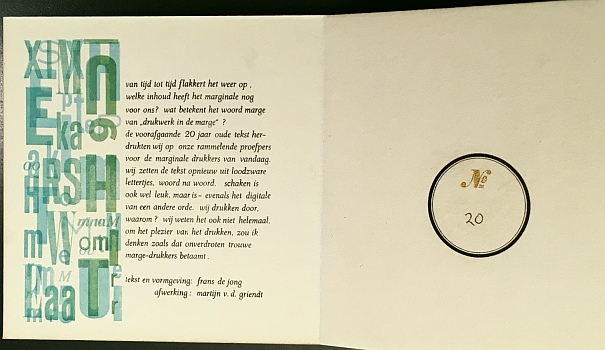 van tijd tot tijd flakkert het weer op ,
welke inhoud heeft het marginale nog
voor ons? wat betekent het woord marge
van „drukwerk in de marge" ?
de voorafgaande 20 jaar oude tekst her-
drukten wij op onze rammelende proefpers
voor de marginale drukkers van vandaag.
wij zetten de tekst opnieuw uit loodzware
lettertjes, woord na woord. schaken is
ook wel leuk, maar is – evenals het digitale
van een andere orde. wij drukken door,
waarom ? wij weten het ook niet helemaal.
om het plezier van het drukken, zou ik
denken zoals dat onverdroten trouwe
marge-drukkers betaamt .
tekst en vormgeving: frans de jong
afwerking : martijn v. d. griendt
No
20